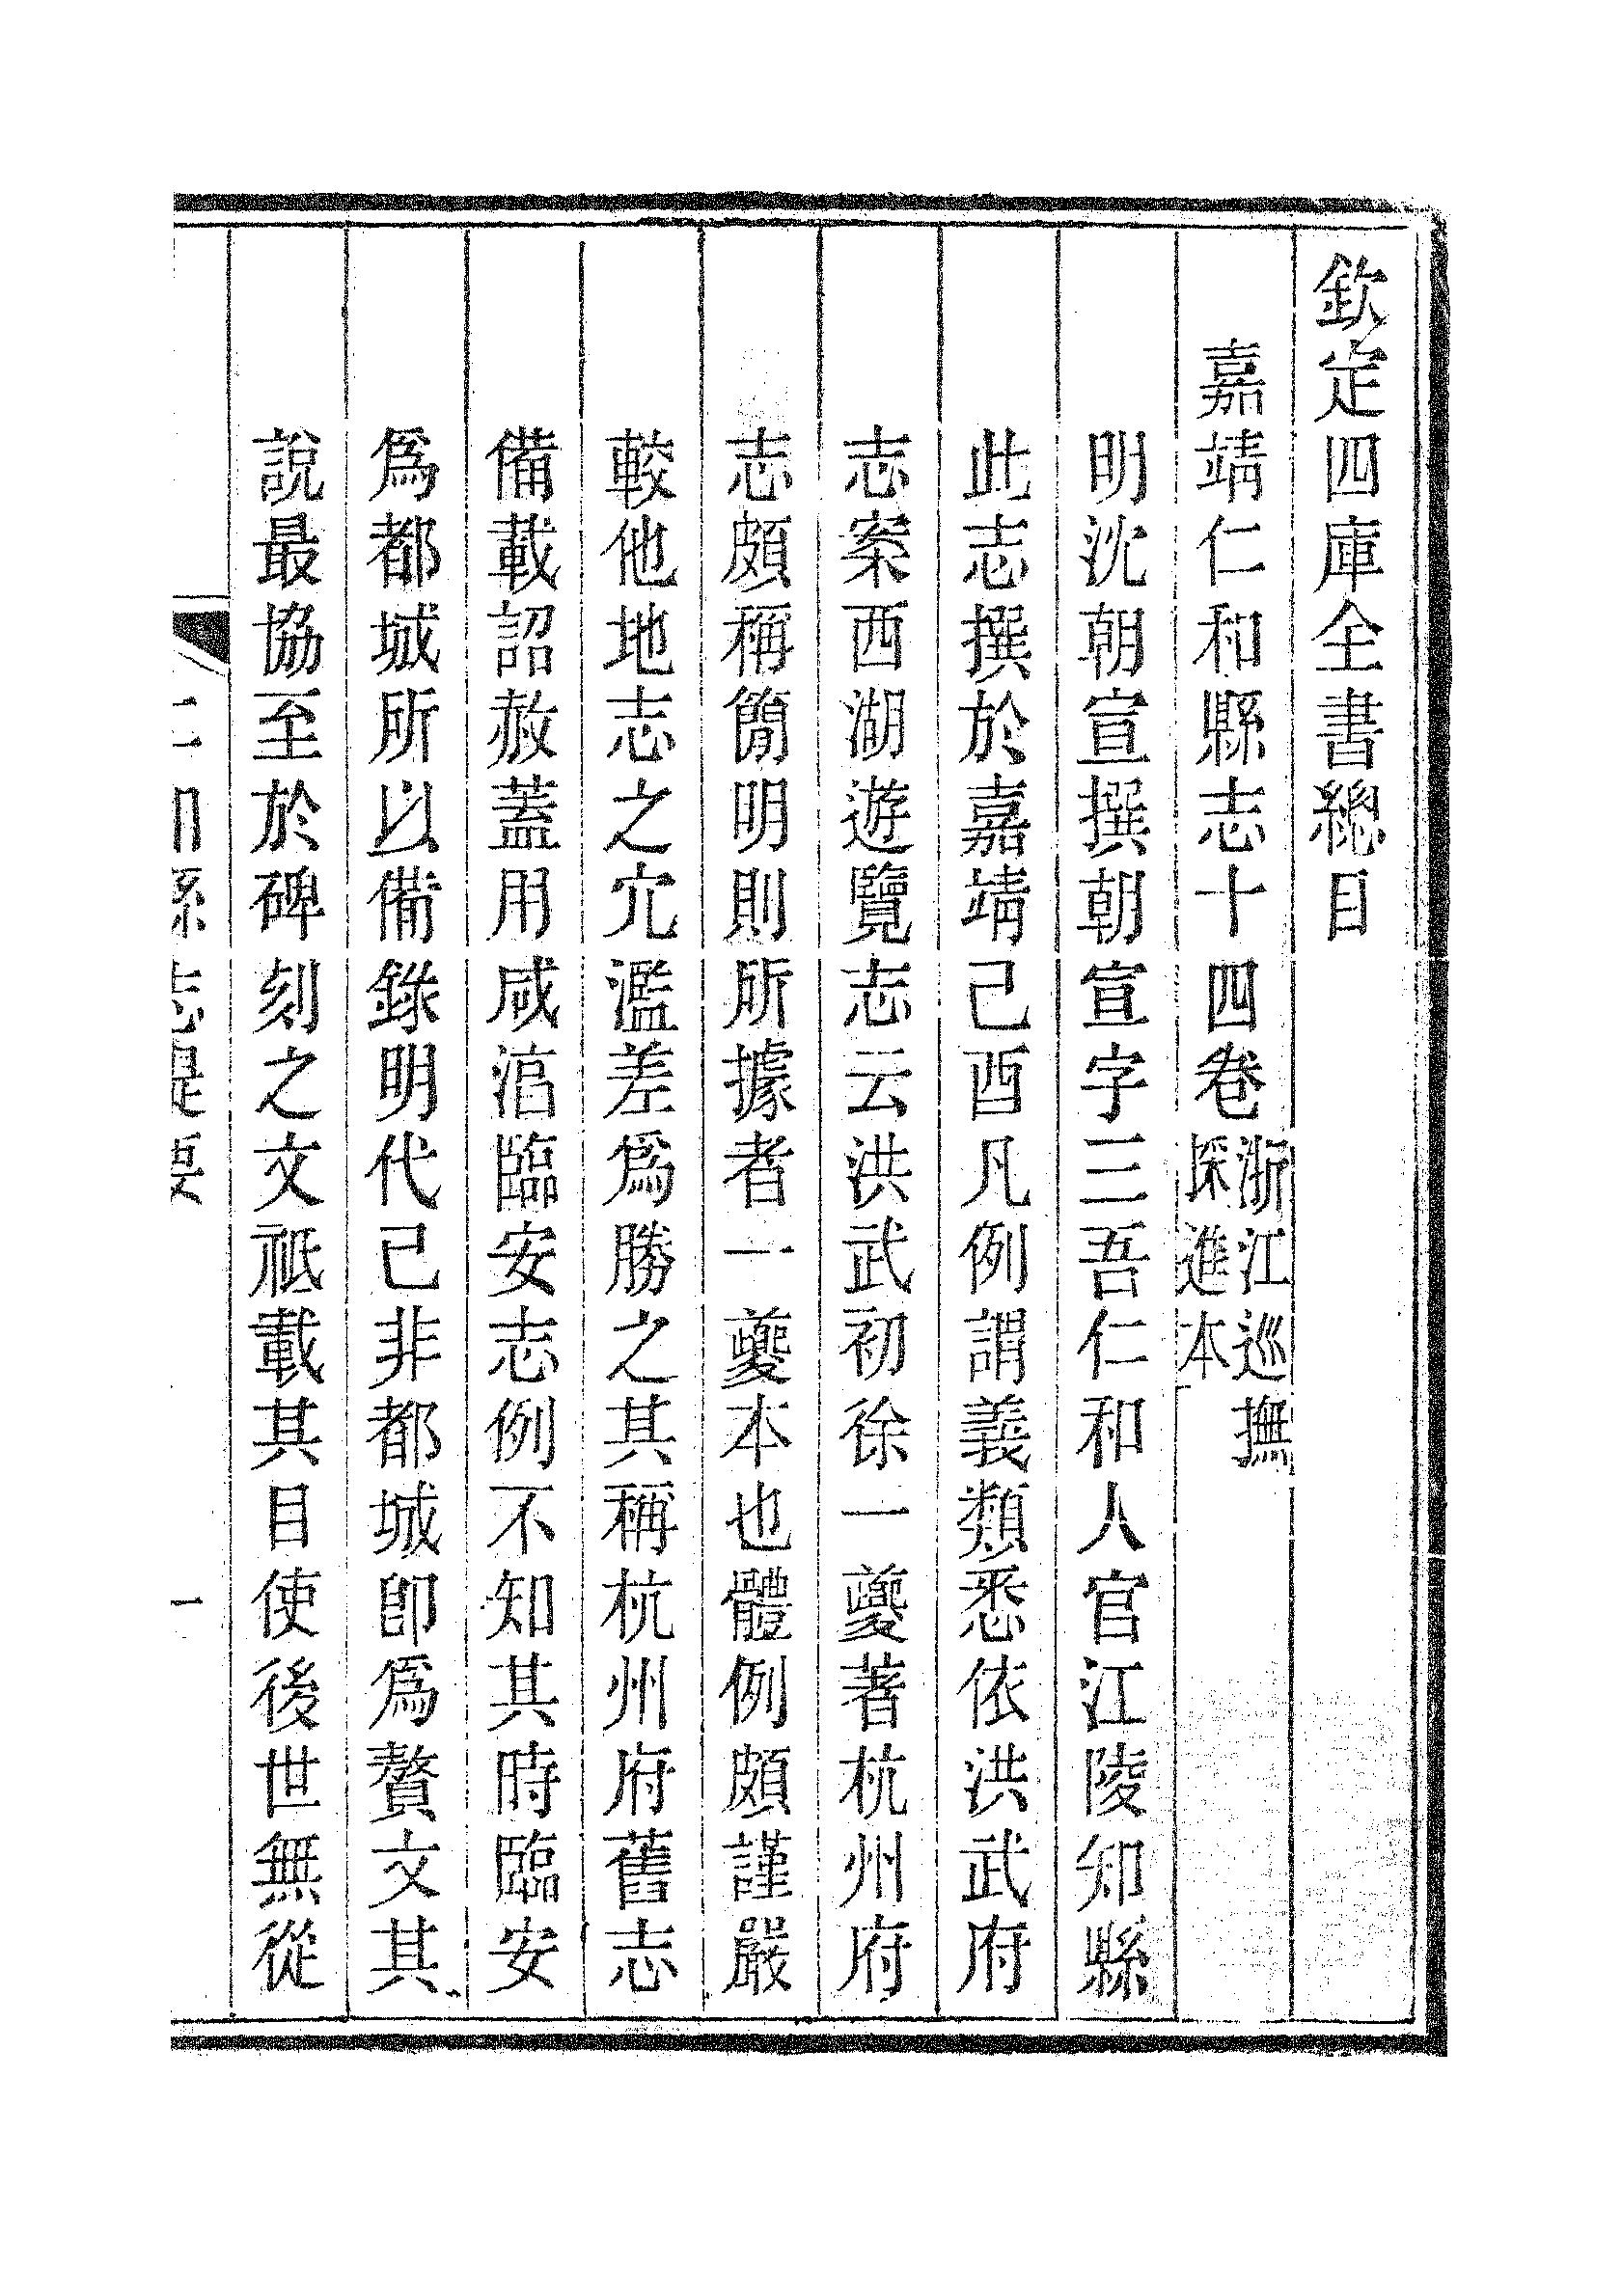 欽定四庫全書總目
嘉靖仁和縣志十四卷浙江巡撫採進本
明沈朝宣撰朝宣字三吾仁和人官江陵知縣
此志撰於嘉靖己酉凡例謂義類悉依洪武府
志案西湖遊覽志云洪武初徐一夔著杭州府
志頗稱簡明則所據者一夔本也體例頗謹嚴
較他地志之冗濫差爲勝之其稱杭州府舊志
備載詔赦蓋用咸淳臨安志例不知其時臨安
爲都城所以備錄明代已非都城卽爲贅文其
說最協至於碑刻之文祗載其目使後世無從
仁和縣志提要
一